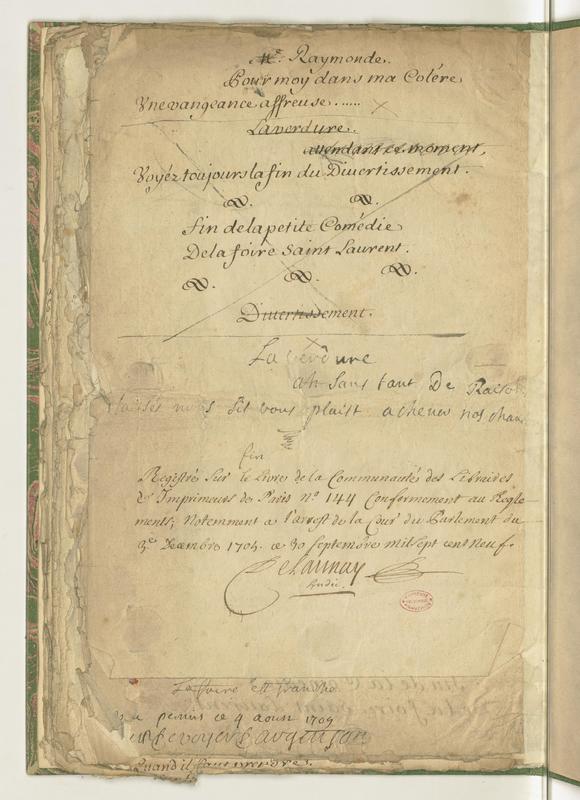 Mr. Raymonde.
Pour moy dans ma Colére
Vne vangeance affreuse .....
Laverdure.
attendant ce moment,
Voyéz toujours la fin du Diuertissement.
fin de la petite Comédie
De la foire Saint Laurent.
Diuertissement.
La verdure
ah Sans tant De Raison
Laissés nous Sil vous plaist acheuer nos chan
fin
Registré Sur le Livre de la Communauté des Libraires
& Imprimeurs de Paris no. 144 Conformement au Regle-
ments, Notemment a l'arrest de la Cour du Parlement du
3e. Decembre 1705. ce 30 Septembre mil Sept cent neuf.
Delaunay
Sindic.
COMÉDIE FRANÇAISE
La foire est
permis ce 4 aoust 1709
de voyer d'argenson
Quand il faut